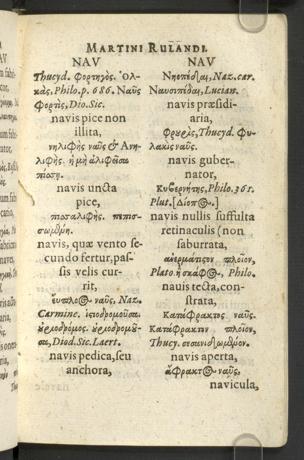 MARTINI RULANDI.
NAV
Thucyd. Φορτηγὸς. Ὁλ-
κὰς, Philo. p. 686. Ναῦς
Φορτὶς, Dio. Sic.
navis pice non
illita,
νηλιφὴς ναῦς & Ἀνη-
λιφὴς ἡ μὴ
navis uncta
pice,
navis, quæ vento se-
cundo fertur, pas-
sis velis cur-
rit,
ναῦς, Naz.
Carmine. ἱστιοδρομοῦσα.
οὐριοδρόμος. οὐριοδρομοῦ-
σα, Diod. Sic. Laert.
navis pedica, seu
anchora,
NAV
Naz. car.
Lucian.
navis præsidi-
aria,
Thucyd. Φυ-
λακὶς ναῦς.
navis guber-
nator,
Κυβερνήτης, Philo. 361.
Plut.
navis nullis suffulta
retinaculis (non
saburrata,
ἀνερμάτιστον πλοῖον,
Plato. ἢ Philo.
navis tecta, con-
strata,
Κατάφρακτος ναῦς.
Κατάφρακτον πλοῖον,
Thucy.
navis aperta,
ἄφρακτος ναῦς,
navicula,